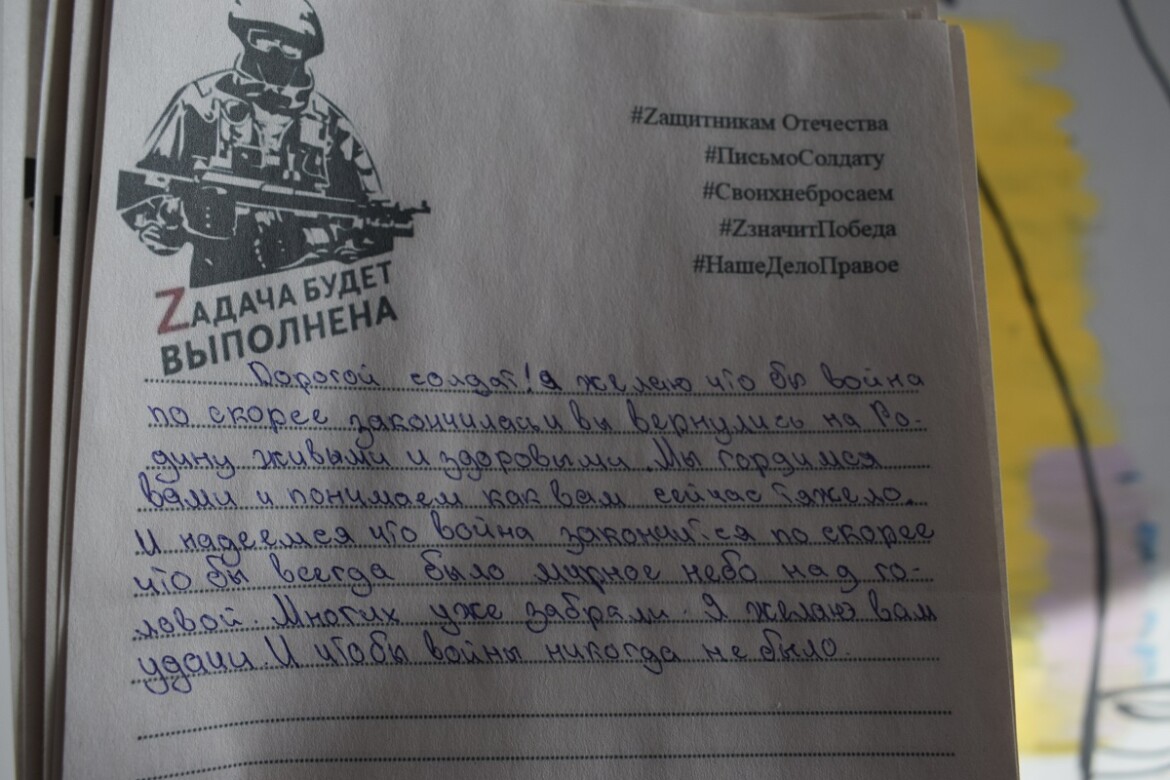 #Zащитникам Отечества
#ПисьмоСолдату
#Своихнебросаем
#ZзначитПобеда
#НашеДелоПравое
ZАДАЧА БУДЕТ
ВЫПОЛНЕНА
Дорогой солдат! Я желаю что бы война
по скорее закончилась и вы вернулись на Ро-
дину живыми и здоровыми. Мы гордимся
вами и понимаем как вам сейчас тяжело.
И надеемся что война закончится по скорее
что бы всегда было мирное небо над го-
ловой. Многих уже забрали. Я желаю вам
удачи. И чтобы войны никогда не было.